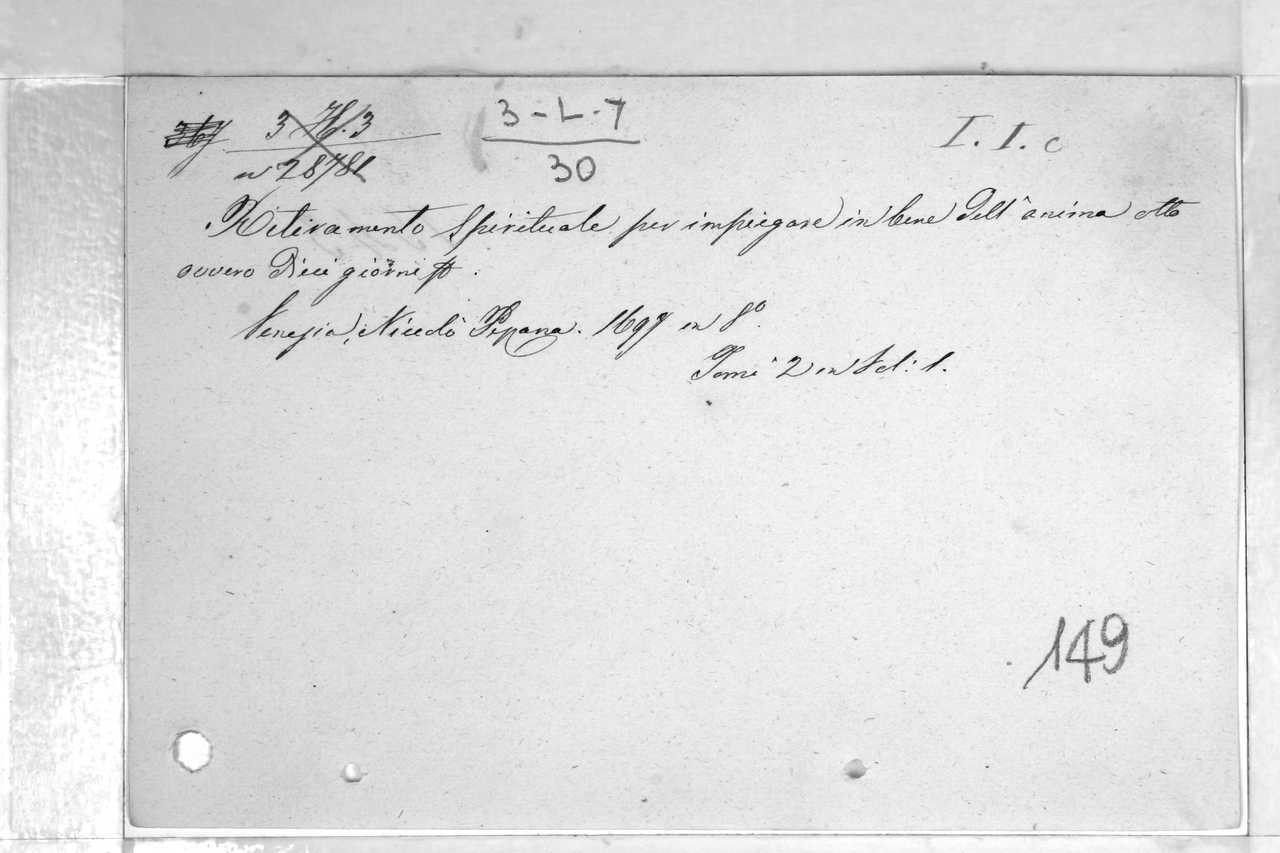 3 H. 3
n 28781
3-L-7
30
I. I. c
Ritiramento Spirituale per impiegare in bene dell'anima otto
ovvero dieci giorni
Venezia, Nicolò Pezzana. 1697 in 8°.
Tomi 2 in Vol: 1.
149